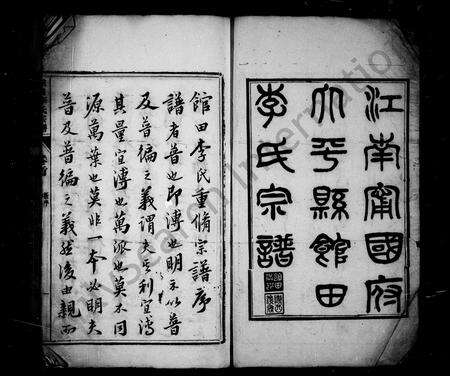 江南甯國府
太平縣館田
李氏宗譜
館田李氏重脩宗譜序
譜者普也即溥也明示以普
及普徧之義謂夫
其量宜溥也萬派也莫不同
源萬葉也莫非一本必明夫
普及普徧之義然後由親而